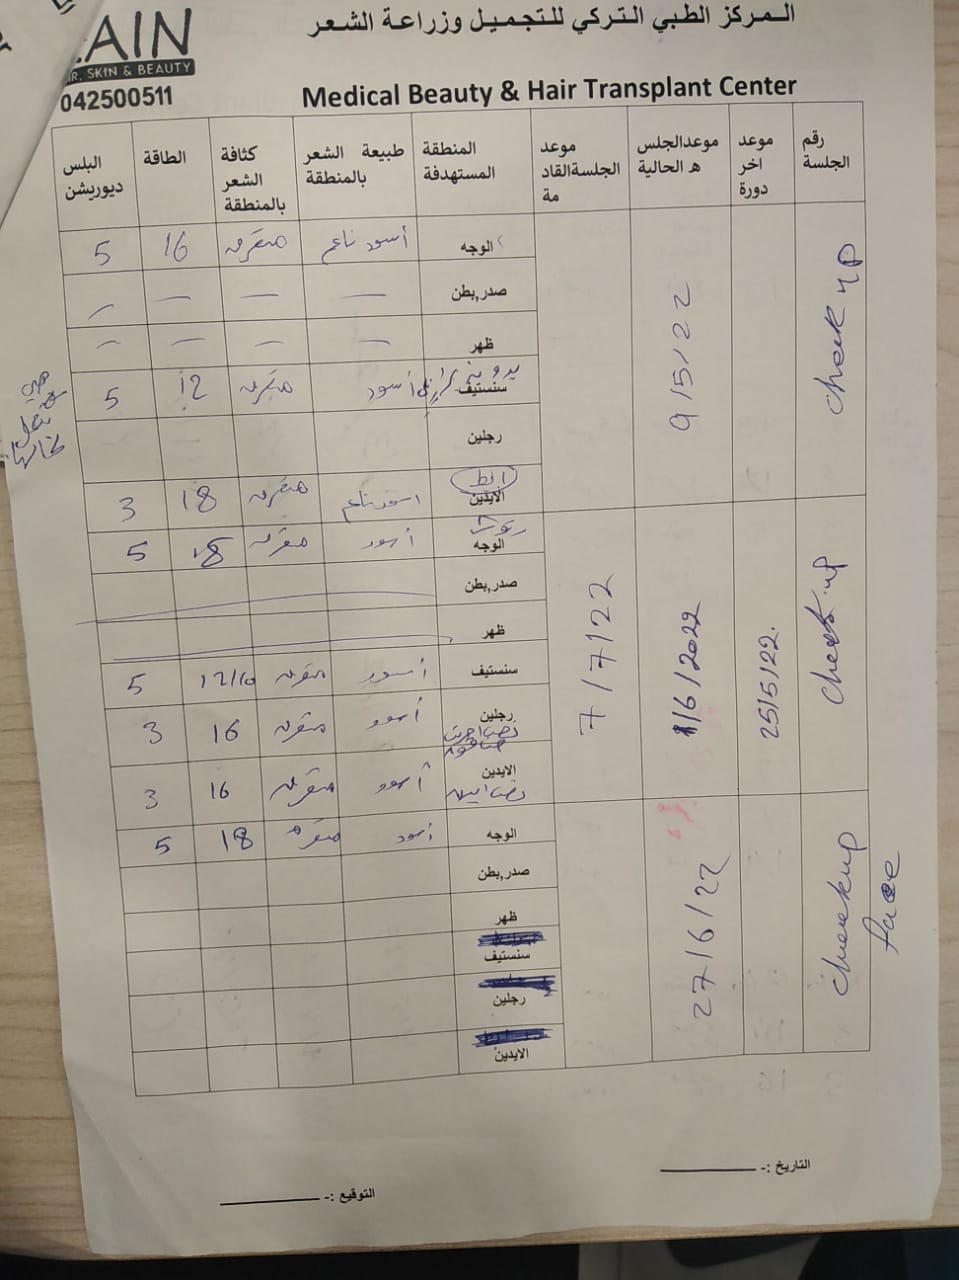 المركز الطبي التركي للتجميل وزراعة الشعر
AIN
SKIN & BEAUTY
042500511
Medical Beauty & Hair Transplant Center
رقم الجلسة
موعد اخر دورة
موعدالجلس ه الحالية
موعد الجلسةالقاد مة
المنطقة المستهدفة
طبيعة الشعر بالمنطقة
كثافة الشعر بالمنطقة
الطاقة
البلس ديوريشن
check up
9/5/22
الوجه أسود ناعم متفرقه 16 5
صدر,بطن — — — —
ظهر — — — —
سنستيف أسود متفرقه 12 5
رجلين
ابط
الايدين اسود ناعم متفرقه 18 3
check up
25/5/22.
1/6/2022
7/7/22
الوجه أسود متفرقه 18 5
صدر,بطن
ظهر
سنستيف أسود متفرقه 12/10 5
رجلين أسود متفرقه 16 3
الايدين أسود متفرقه 16 3
checkup face
27/6/22
الوجه أسود متفرقه 18 5
صدر,بطن
ظهر
سنستيف
رجلين
الايدين
التاريخ :-
التوقيع :-